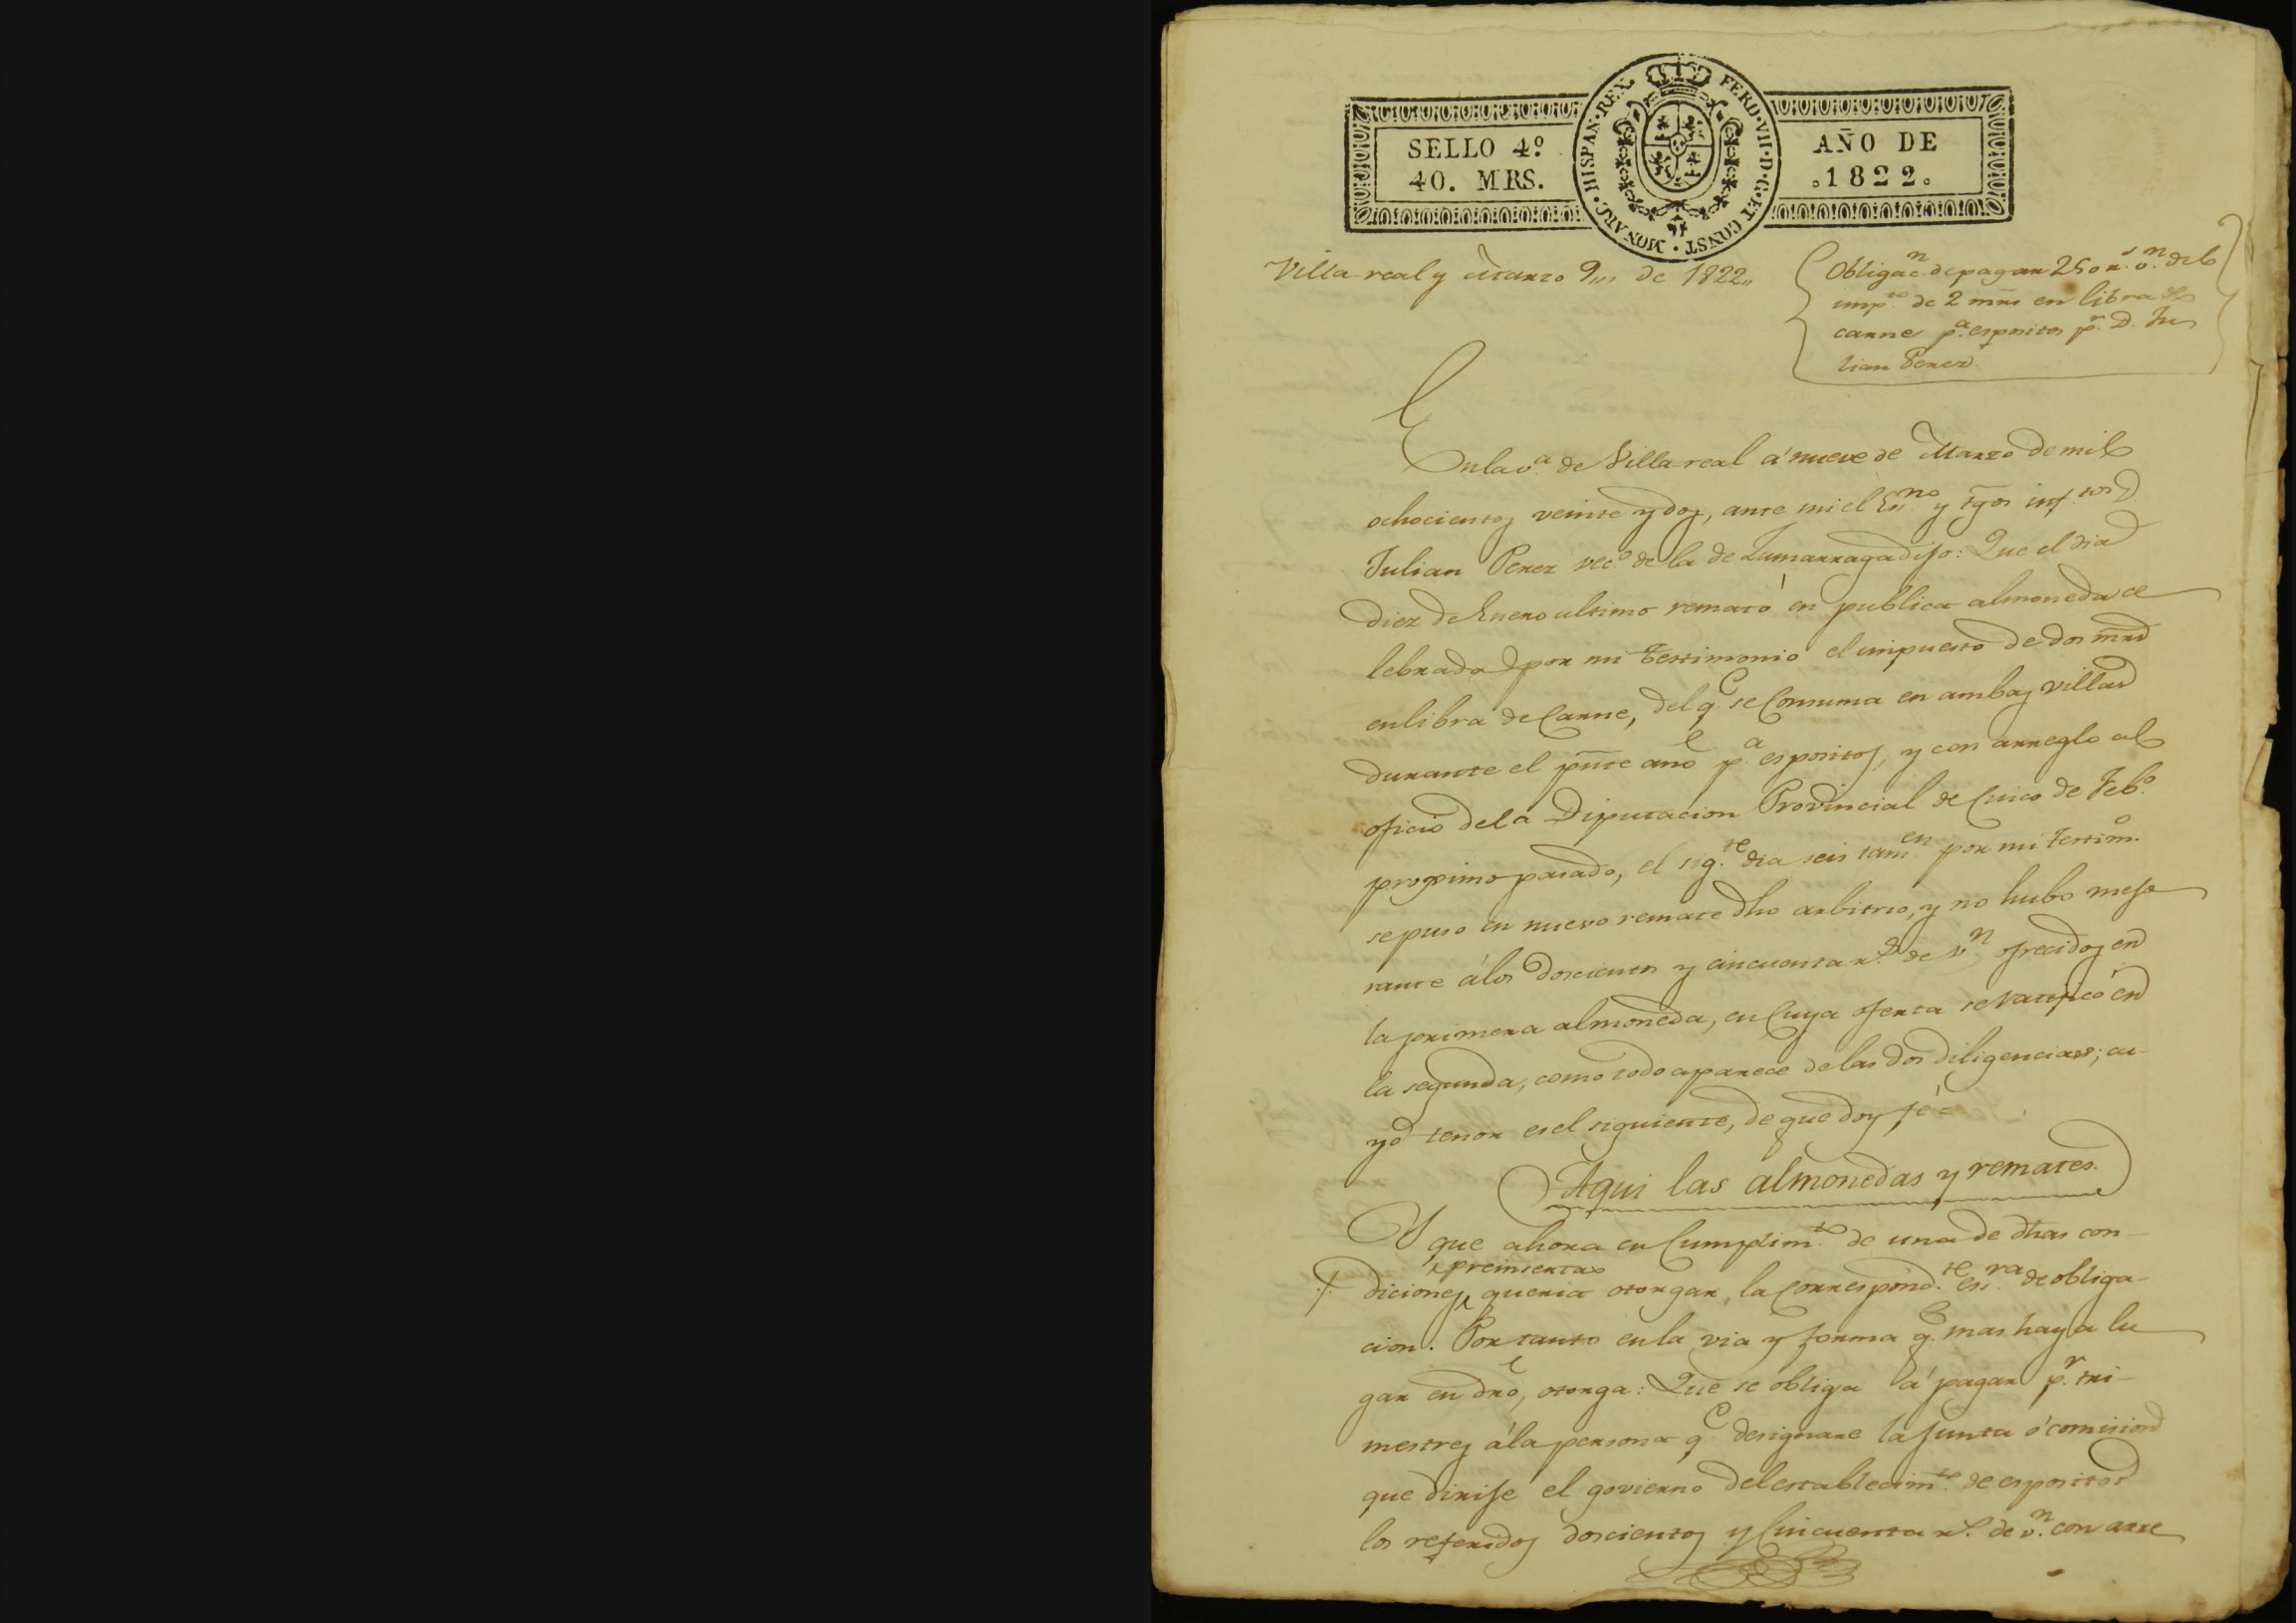 SELLO 4º
40. MRS.
HISPAN·REX. FERD·VII·D·G·ET CONST·MONARC·
AÑO DE
1822
Villa-real y Marzo 9,,, de 1822,,
Obligac.n de pagar 250 r.s v.n del
imp.to de 2 mrs en libra de
carne p.a espositos p.r D. Ju
lian Perez
En la v.a de Villa-real á nueve de Marzo de mil
ochocientos veinte y dos, ante mi el Es.no y tgos inf.tos
Julian Perez vec.o de la de Zumarraga dijo: Que el dia
diez de Enero ultimo remató en publica almoneda ce
lebrada por mi testimonio el impuesto de dos mrs
en libra de Carne, del q.e se Consuma en ambas villas
durante el pnte año p.a espositos, y con arreglo al
oficio de la Diputacion Provincial de Cinco de Feb.o
proximo pasado, el sig.te dia seis tam.en por mi testim.o
se puso en nuevo remate dho arbitrio, y no hubo mejo
rante á los doscientos y cincuenta r.s de v.n ofrecidos en
la primera almoneda, en Cuya oferta se ratificó en
la segunda, como todo aparece de las dos diligencias; cu-
yo tenor es el siguiente, de que doy fé=
Aqui las almonedas y remates.
Y que ahora en Cumplim.to de una de dhas con-
preinsertas
diciones, queria otorgar la Correspond.te es.ra de obliga-
cion. Por tanto en la via y forma q.e mas haya lu
gar en dro, otorga: Que se obliga á pagar p.r tri-
mestres á la persona q.e designare la Junta ó comision
que dirije el govierno del establecim.to de espositos
los referidos doscientos y Cincuenta r.s de v.n con arre